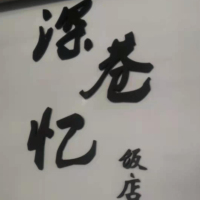 深巷忆
饭店